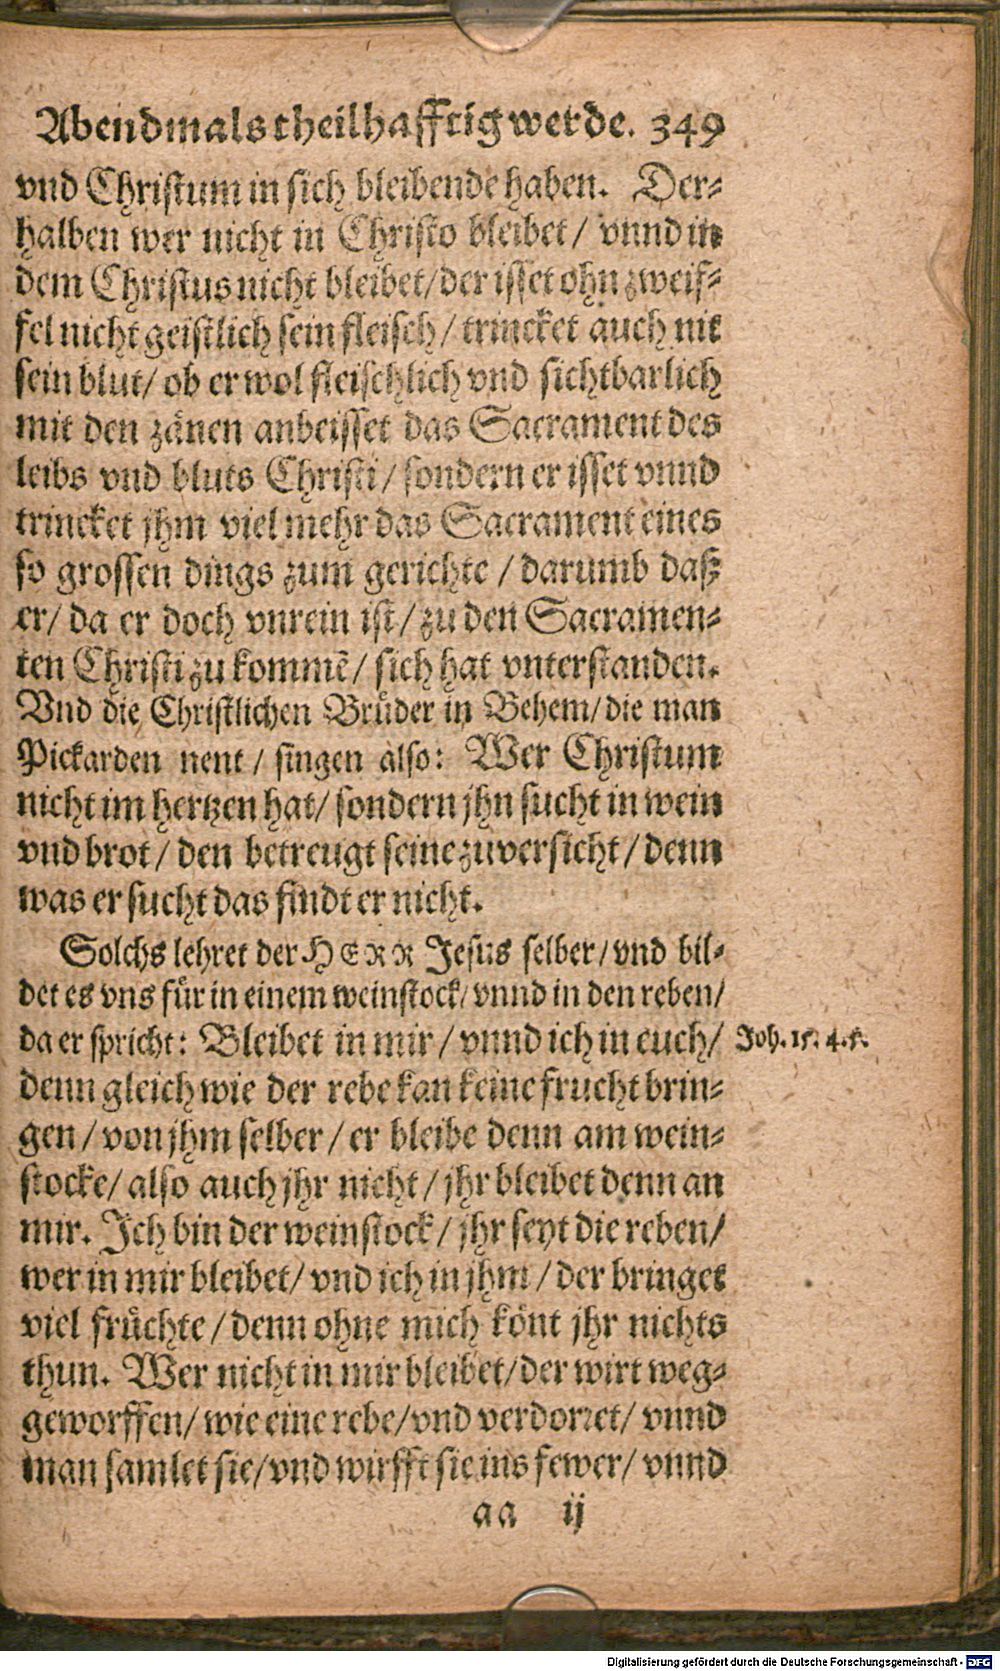 Abendmals theilhafftig werde. 349
vnd Christum in sich bleibende haben. Der⸗
halben wer nicht in Christo bleibet / vnnd in
dem Christus nicht bleibet/der isset ohn zweif⸗
fel nicht geistlich sein fleisch / trincket auch nit
sein blut/ ob er wol fleischlich vnd sichtbarlich
mit den zänen anbeisset das Sacrament des
leibs vnd bluts Christi / sondern er isset vnnd
trincket jhm viel mehr das Sacrament eines
so grossen dings zum gerichte / darumb daß
er/ da er doch vnrein ist / zu den Sacramen⸗
ten Christi zu kommẽ / sich hat vnterstanden.
Vnd die Christlichen Brüder in Behem/die man
Pickarden nent / singen also: Wer Christum
nicht im hertzen hat/ sondern jhn sucht in wein
vnd brot / den betreugt seine zuversicht / denn
was er sucht das findt er nicht.
Solchs lehret der HERR Jesus selber/vnd bil⸗
det es vns für in einem weinstock/ vnnd in den reben/
da er spricht: Bleibet in mir / vnnd ich in euch/
Joh. 15. 4.5.
denn gleich wie der rebe kan keine frucht brin⸗
gen / von jhm selber / er bleibe denn am wein⸗
stocke/ also auch jhr nicht / jhr bleibet denn an
mir. Ich bin der weinstock / jhr seyt die reben/
wer in mir bleibet/ vnd ich in jhm / der bringet
viel früchte / denn ohne mich könt jhr nichts
thun. Wer nicht in mir bleibet/der wirt weg⸗
geworffen/ wie eine rebe/vnd verdorret/ vnnd
man samlet sie/vnd wirfft sie ins fewer/ vnnd
aa ij
Digitalisierung gefördert durch die Deutsche Forschungsgemeinschaft - DFG